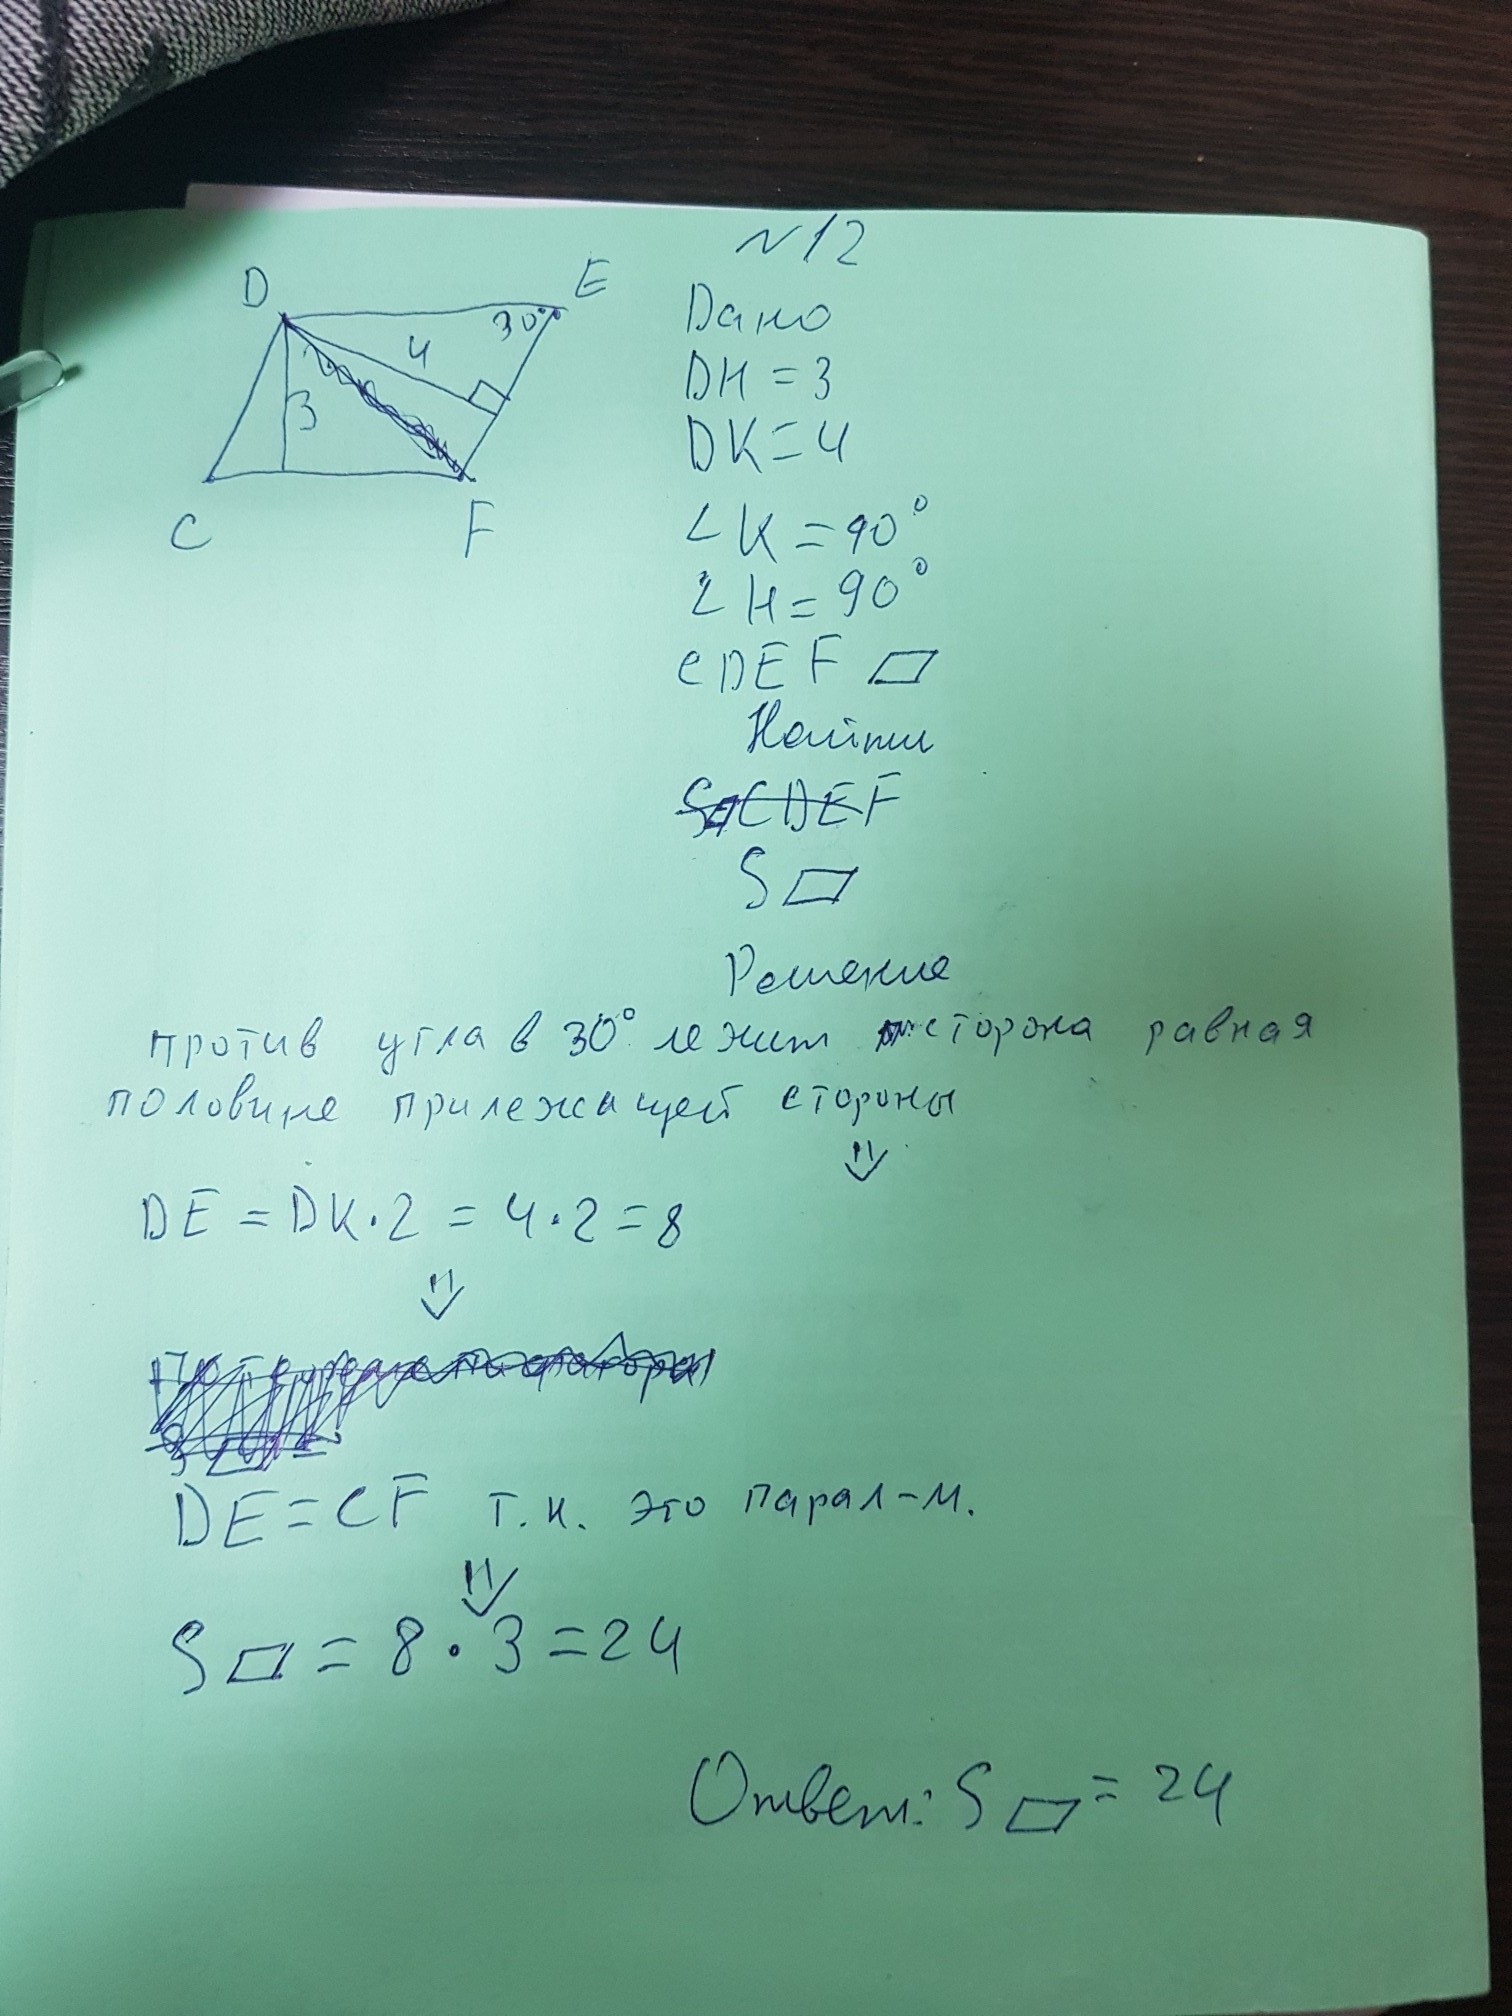 N12
D
E
30°
4
3
C
F
Дано
DH = 3
DK = 4
∠K = 90°
∠H = 90°
CDEF ▱
Найти
S▱CDEF
S▱
Решение
против угла в 30° лежит сторона равная
половине прилежащей стороны
⇓
DE = DK · 2 = 4 · 2 = 8
⇓
DE = CF т.к. это парал-м.
⇓
S▱ = 8 · 3 = 24
Ответ: S▱ = 24